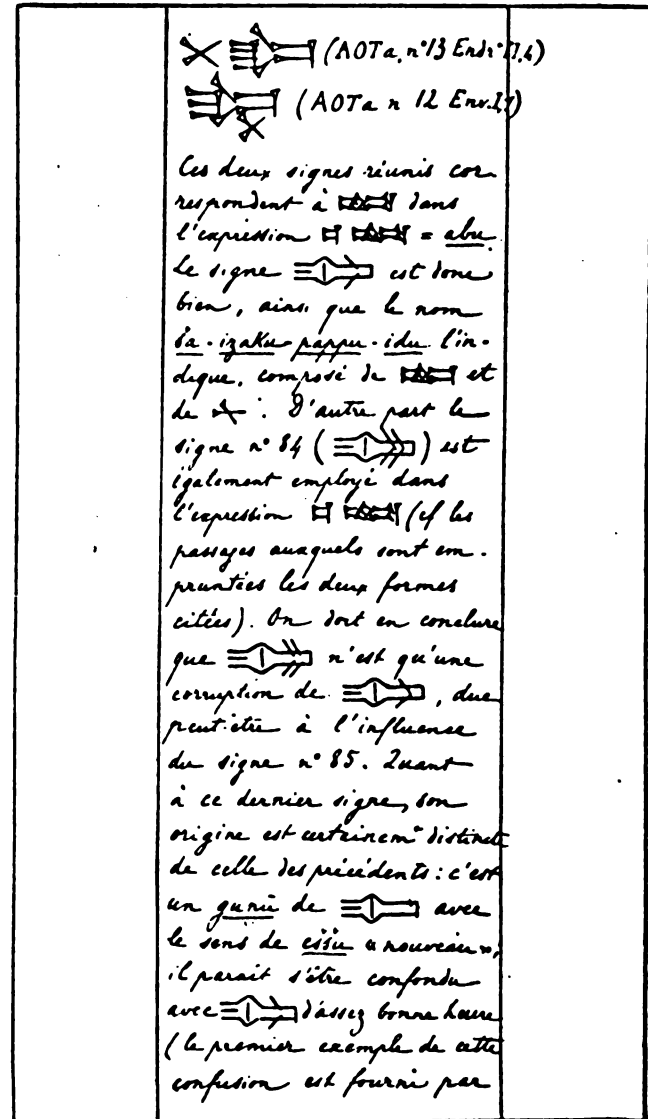 (AOTa, n° 13 Endr° II,4)
(AOTa n 12 Env. I,7)
Ces deux signes réunis cor-
respondent à dans
l'expression = abu.
Le signe est donc
bien, ainsi que le nom
ša-izaku-pappu-idu l'in-
dique, composé de et
de . D'autre part le
signe n° 84 ( ) est
également employé dans
l'expression (cf les
passages auxquels sont em-
pruntées les deux formes
citées). On doit en conclure
que n'est qu'une
corruption de , due
peut-être à l'influense
du signe n° 85. Quant
à ce dernier signe, son
origine est certainemt distincte
de celle des précédents : c'est
un gunû de avec
le sens de eššu « nouveau »,
il parait s'être confondu
avec d'assez bonne heure
(le premier exemple de cette
confusion est fourni par